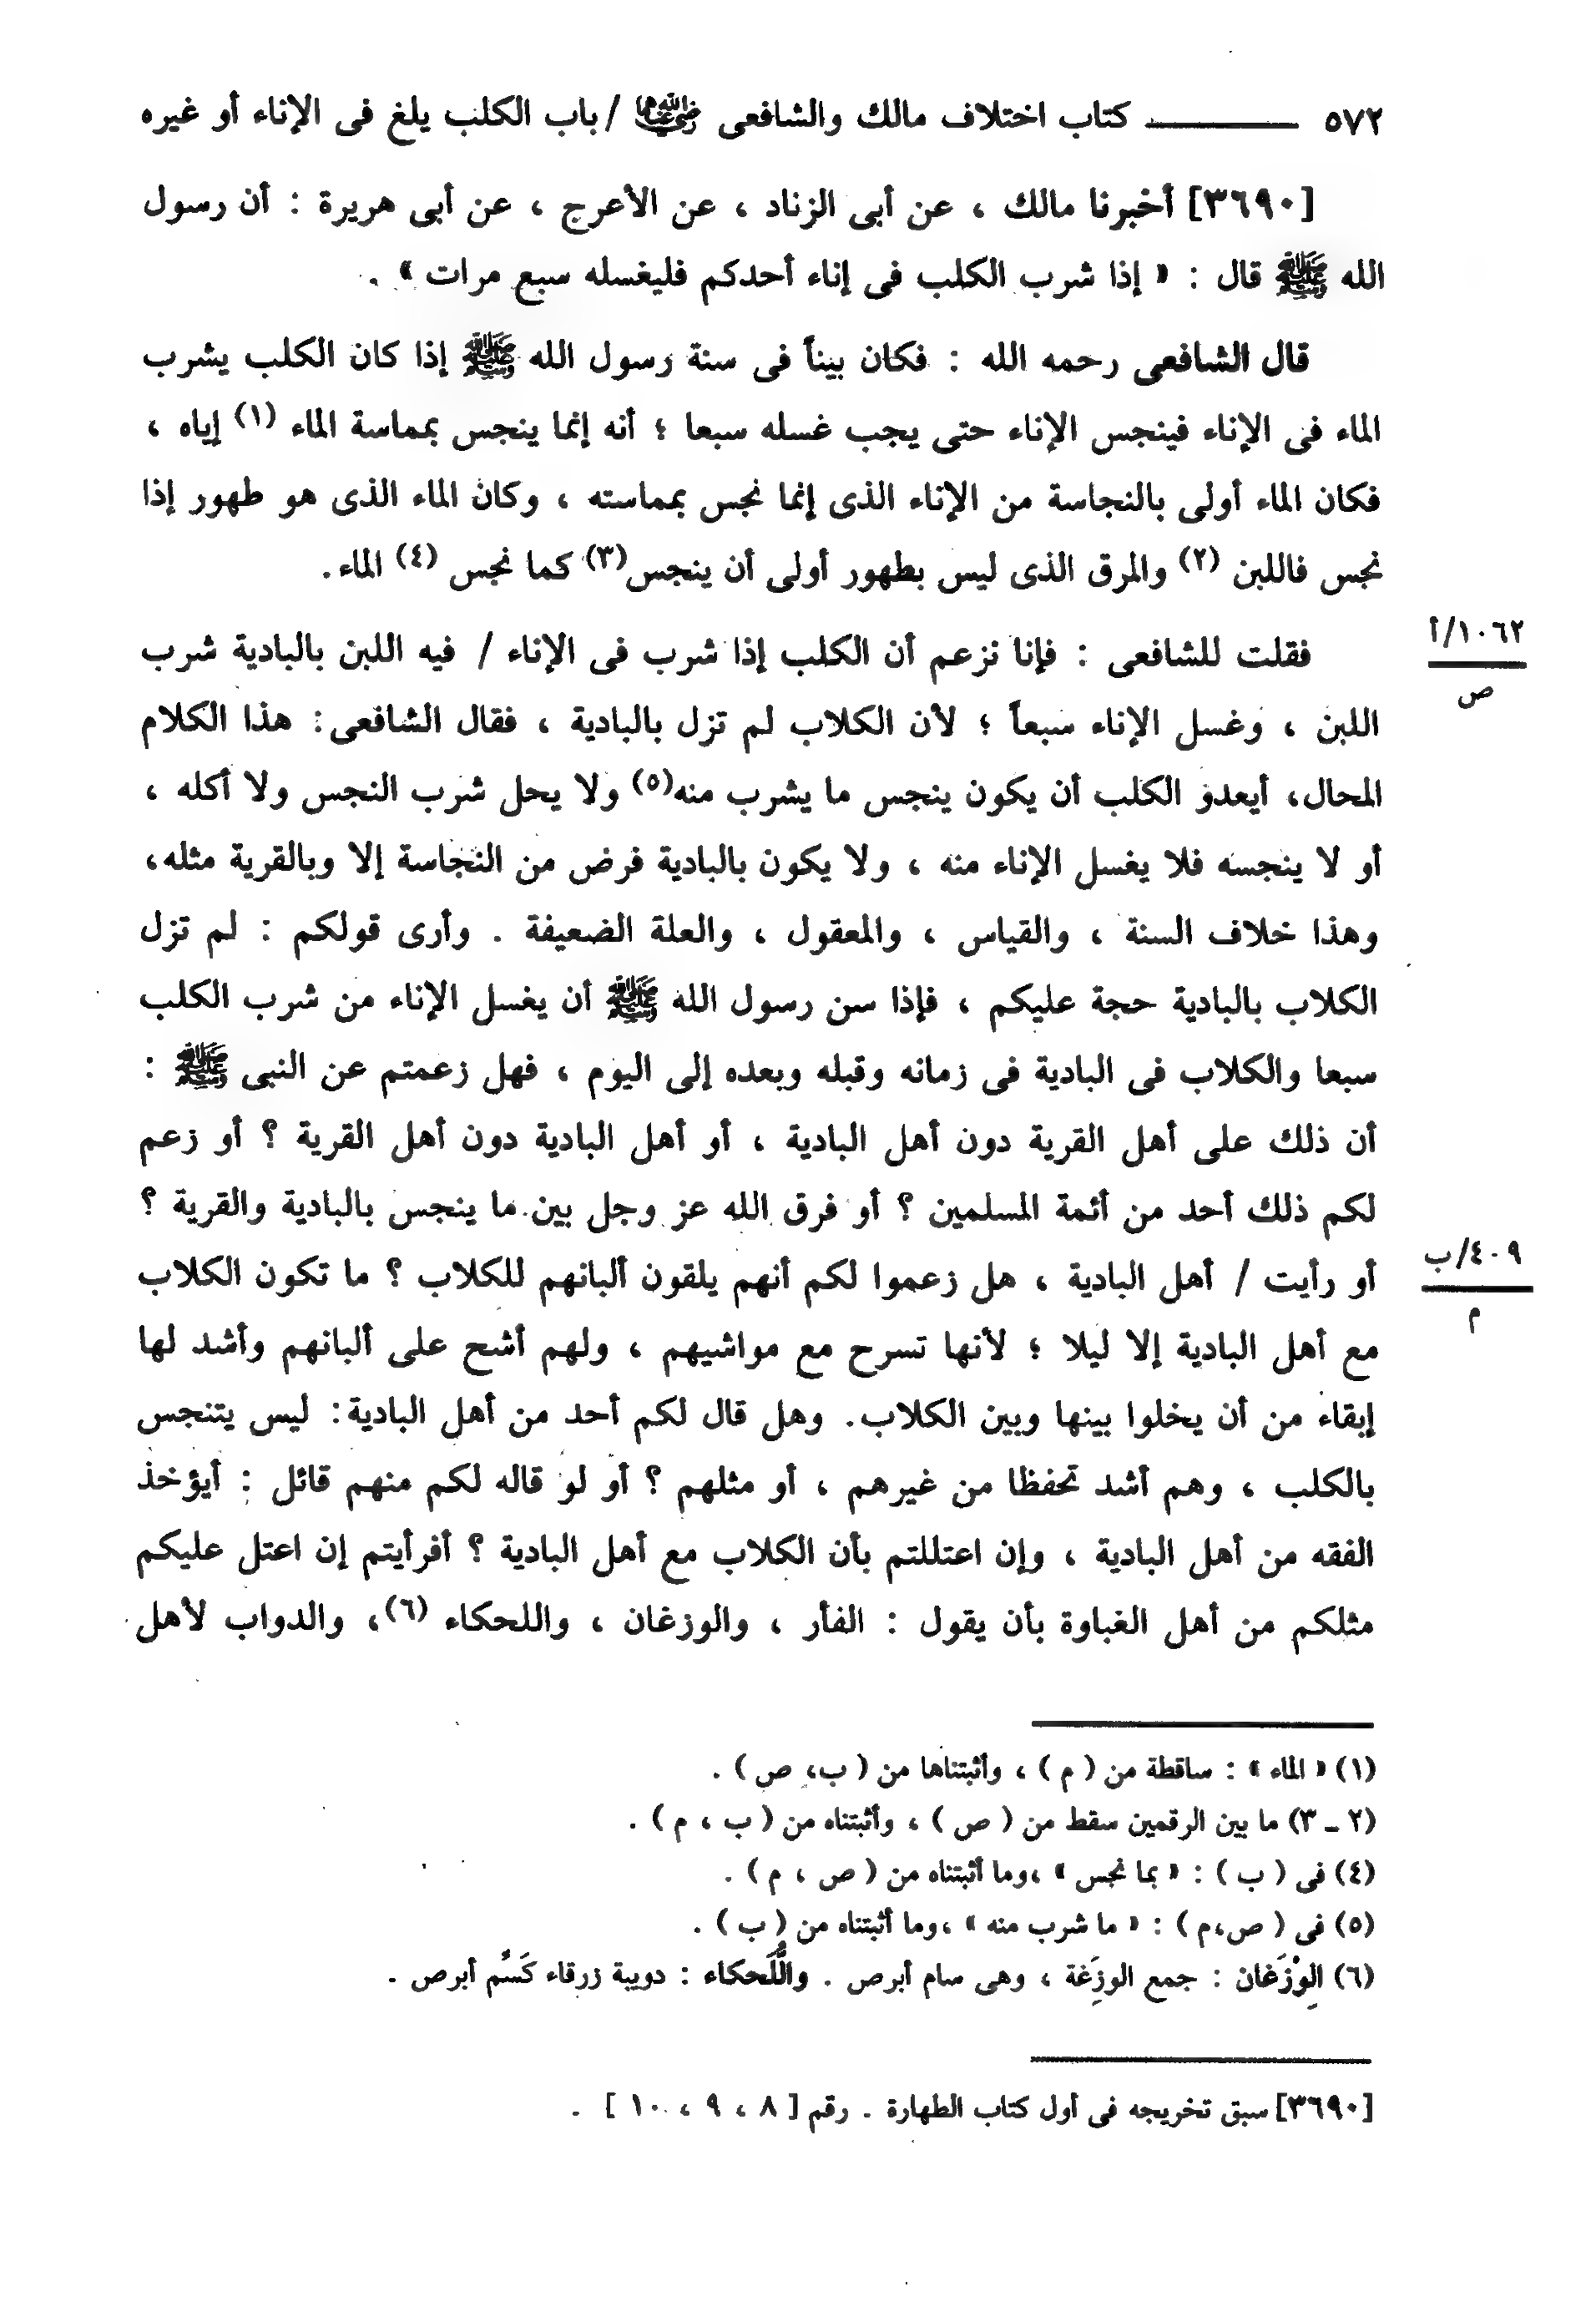 ٥٧٢ ــــــــ كتاب اختلاف مالك والشافعى رضي الله عنهما / باب الكلب يلغ فى الإناء أو غيره
[٣٦٩٠] أخبرنا مالك ، عن أبى الزناد ، عن الأعرج ، عن أبى هريرة : أن رسول
الله ﷺ قال : « إذا شرب الكلب فى إناء أحدكم فليغسله سبع مرات » .
قال الشافعى رحمه الله : فكان بيناً فى سنة رسول الله ﷺ إذا كان الكلب يشرب
الماء فى الإناء فينجس الإناء حتى يجب غسله سبعا ؛ أنه إنما ينجس بمماسة الماء (١) إياه ،
فكان الماء أولى بالنجاسة من الإناء الذى إنما نجس بمماسته ، وكان الماء الذى هو طهور إذا
نجس فاللبن (٢) والمرق الذى ليس بطهور أولى أن ينجس(٣) كما نجس (٤) الماء.
فقلت للشافعى : فإنا نزعم أن الكلب إذا شرب فى الإناء / فيه اللبن بالبادية شرب
١٠٦٢/أ
ص
اللبن ، وغسل الإناء سبعاً ؛ لأن الكلاب لم تزل بالبادية ، فقال الشافعى: هذا الكلام
المحال، أيعدو الكلب أن يكون ينجس ما يشرب منه(٥) ولا يحل شرب النجس ولا أكله ،
أو لا ينجسه فلا يغسل الإناء منه ، ولا يكون بالبادية فرض من النجاسة إلا وبالقرية مثله،
وهذا خلاف السنة ، والقياس ، والمعقول ، والعلة الضعيفة . وأرى قولكم : لم تزل
الكلاب بالبادية حجة عليكم ، فإذا سن رسول الله ﷺ أن يغسل الإناء من شرب الكلب
سبعا والكلاب فى البادية فى زمانه وقبله وبعده إلى اليوم ، فهل زعمتم عن النبى ﷺ :
أن ذلك على أهل القرية دون أهل البادية ، أو أهل البادية دون أهل القرية ؟ أو زعم
لكم ذلك أحد من أئمة المسلمين ؟ أو فرق الله عز وجل بين ما ينجس بالبادية والقرية ؟
أو رأيت / أهل البادية ، هل زعموا لكم أنهم يلقون ألبانهم للكلاب ؟ ما تكون الكلاب
٤٠٩/ب
م
مع أهل البادية إلا ليلا ؛ لأنها تسرح مع مواشيهم ، ولهم أشح على ألبانهم وأشد لها
إبقاء من أن يخلوا بينها وبين الكلاب. وهل قال لكم أحد من أهل البادية: ليس يتنجس
بالكلب ، وهم أشد تحفظا من غيرهم ، أو مثلهم ؟ أو لو قاله لكم منهم قائل : أيؤخذ
الفقه من أهل البادية ، وإن اعتللتم بأن الكلاب مع أهل البادية ؟ أفرأيتم إن اعتل عليكم
مثلكم من أهل الغباوة بأن يقول : الفأر ، والوزغان ، واللحكاء (٦)، والدواب لأهل
(١) « الماء » : ساقطة من ( م ) ، وأثبتناها من ( ب، ص ) .
(٢ ـ ٣) ما بين الرقمين سقط من ( ص ) ، وأثبتناه من ( ب ، م ) .
(٤) فى ( ب ) : « بما نجس » ،وما أثبتناه من ( ص ، م ) .
(٥) فى ( ص،م ) : « ما شرب منه » ،وما أثبتناه من ( ب ) .
(٦) الوِزْغان : جمع الوزغة ، وهى سام أبرص . واللُّحَكاء : دويبة زرقاء كَسَمِّ أبرص .
[٣٦٩٠] سبق تخريجه فى أول كتاب الطهارة . رقم [ ٨ ، ٩ ، ١٠ ] .